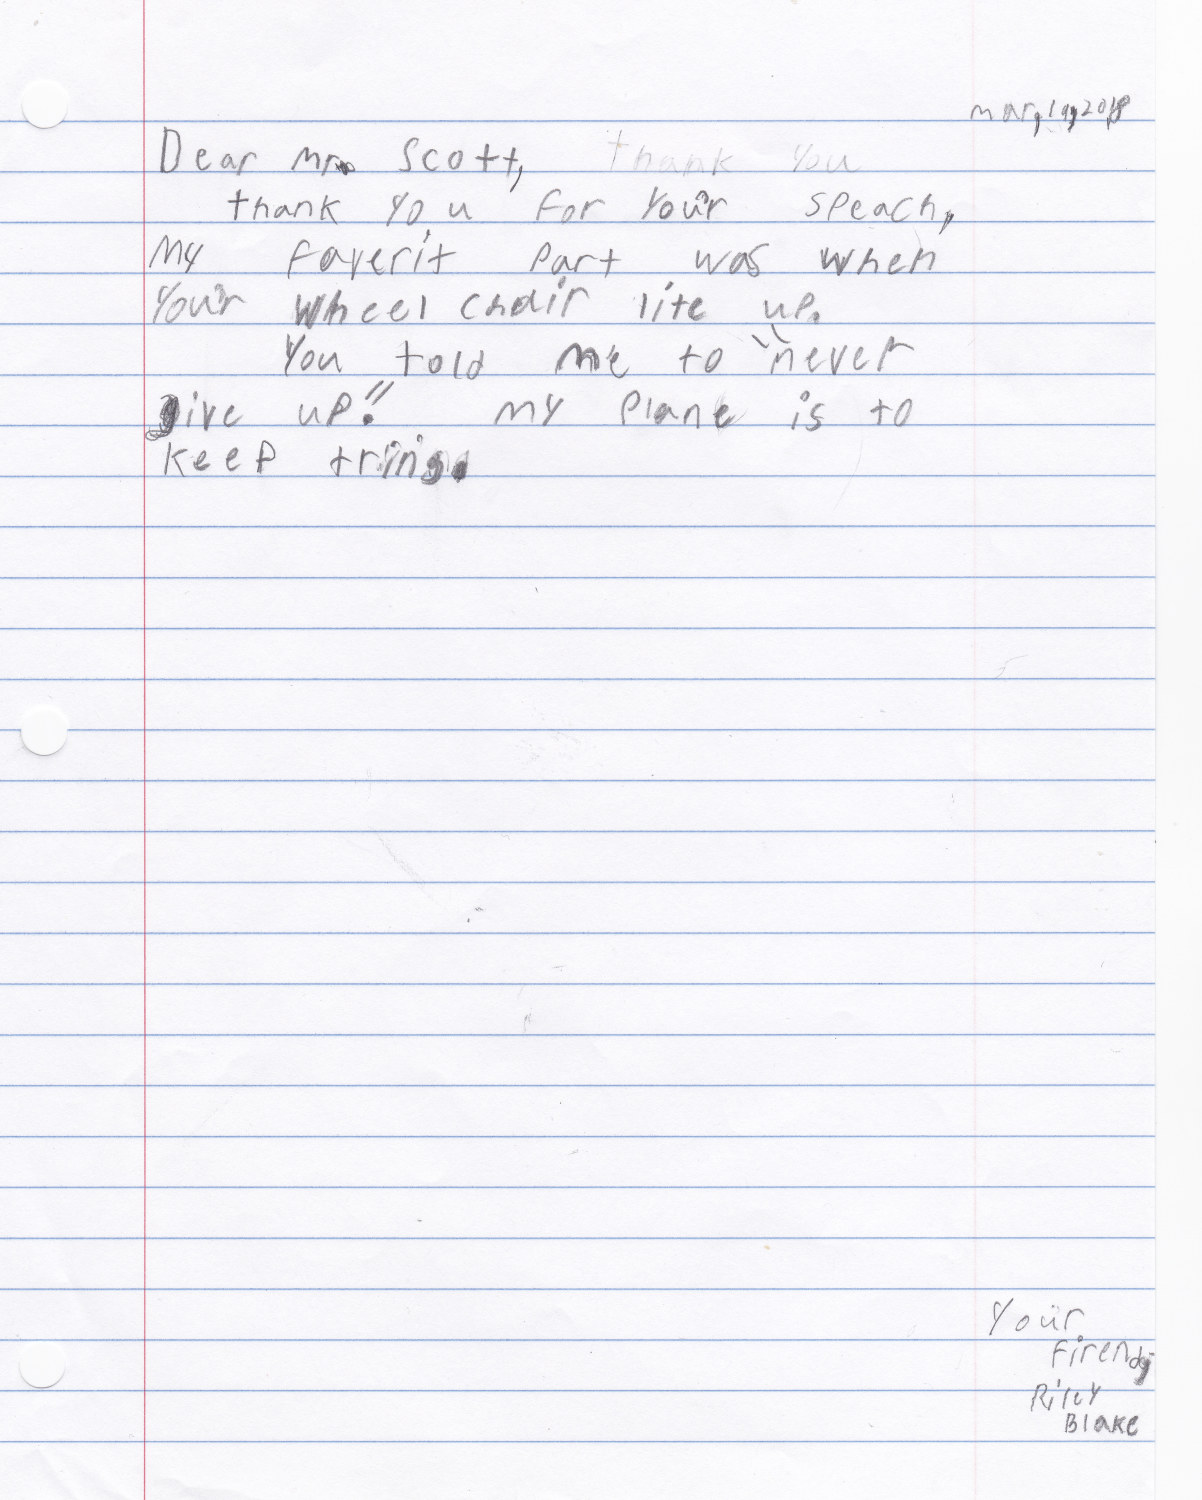 mar, 19, 2018
Dear Mr. Scott, thank you
thank you for your speach,
My faverit part was when
your wheel chair lite up.
You told me to "never
give up!" my plane is to
keep tring.
Your
firend,
Riley
Blake